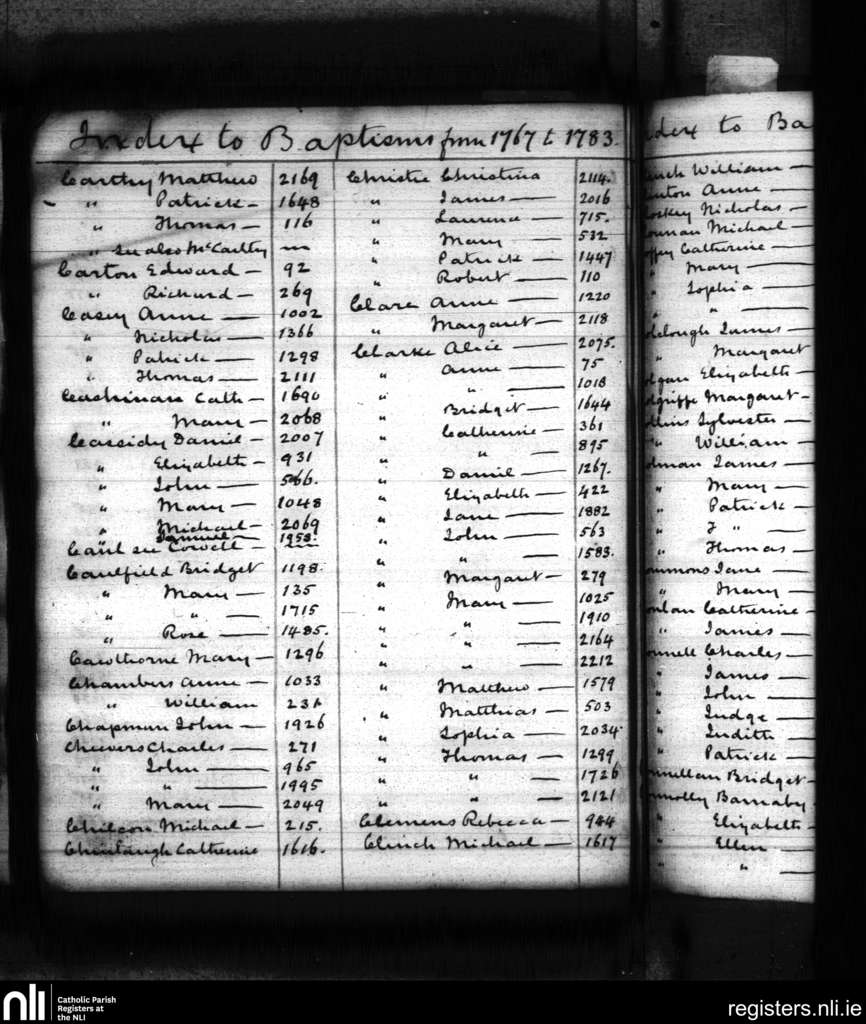 Index to Baptisms from 1767 to 1783.
Carthy Matthew 2169
" Patrick — 1648
" Thomas — 116
" see also McCarthy —
Carton Edward — 92
" Richard — 269
Casey Anne — 1002
" Nicholas — 1366
" Patrick — 1298
" Thomas — 2111
Cashinan Cath — 1690
" Mary — 2068
Cassidy Daniel — 2007
" Elizabeth — 931
" John — 566.
" Mary — 1048
" Michael — 2069
" Samuel — 1953.
Caul see Cowell —
Caulfield Bridget 1198.
" Mary — 135
" " — 1715
" Rose — 1485.
Cawthorne Mary — 1296
Chambers Anne — 1033
" William 231
Chapman John — 1926
Cheevers Charles — 271
" John — 965
" " — 1995
" Mary — 2049
Chilcon Michael — 215.
Catherine 1616.
Christie Christina 2114.
" James — 2016
" Laurence — 715.
" Mary — 532
" Patrick — 1447
" Robert — 110
Clare Anne — 1220
" Margaret — 2118
Clarke Alice — 2075.
" Anne — 75
" " — 1018
" Bridget — 1644
" Catherine — 361
" " — 895
" Daniel — 1267.
" Elizabeth — 422
" Jane — 1882
" John — 563
" " — 1583.
" Margaret — 279
" Mary — 1025
" " — 1910
" " — 2164
" " — 2212
" Matthew — 1579
" Matthias — 503
" Sophia — 2034
" Thomas — 1299
" " — 1726
" " — 2121
Clemens Rebecca — 944
Clinch Michael — 1617
dex to Ba
nch William —
nton Anne —
oskey Nicholas —
Michael —
ffey Catherine —
" Mary —
" Sophia —
" " —
lclough James —
" Margaret
lgan Elizabeth —
lgriffe Margaret —
llins Sylvester —
" William —
lman James —
" Mary —
" Patrick —
" J " —
" Thomas —
ommons Jane —
" Mary —
onlan Catherine —
" James —
onnell Charles —
" James —
" John —
" Judge —
" Judith —
" Patrick —
nnellan Bridget —
nnolly Barnaby
" Elizabeth —
" Ellen —
" " —
nli
Catholic Parish
Registers at
the NLI
registers.nli.ie